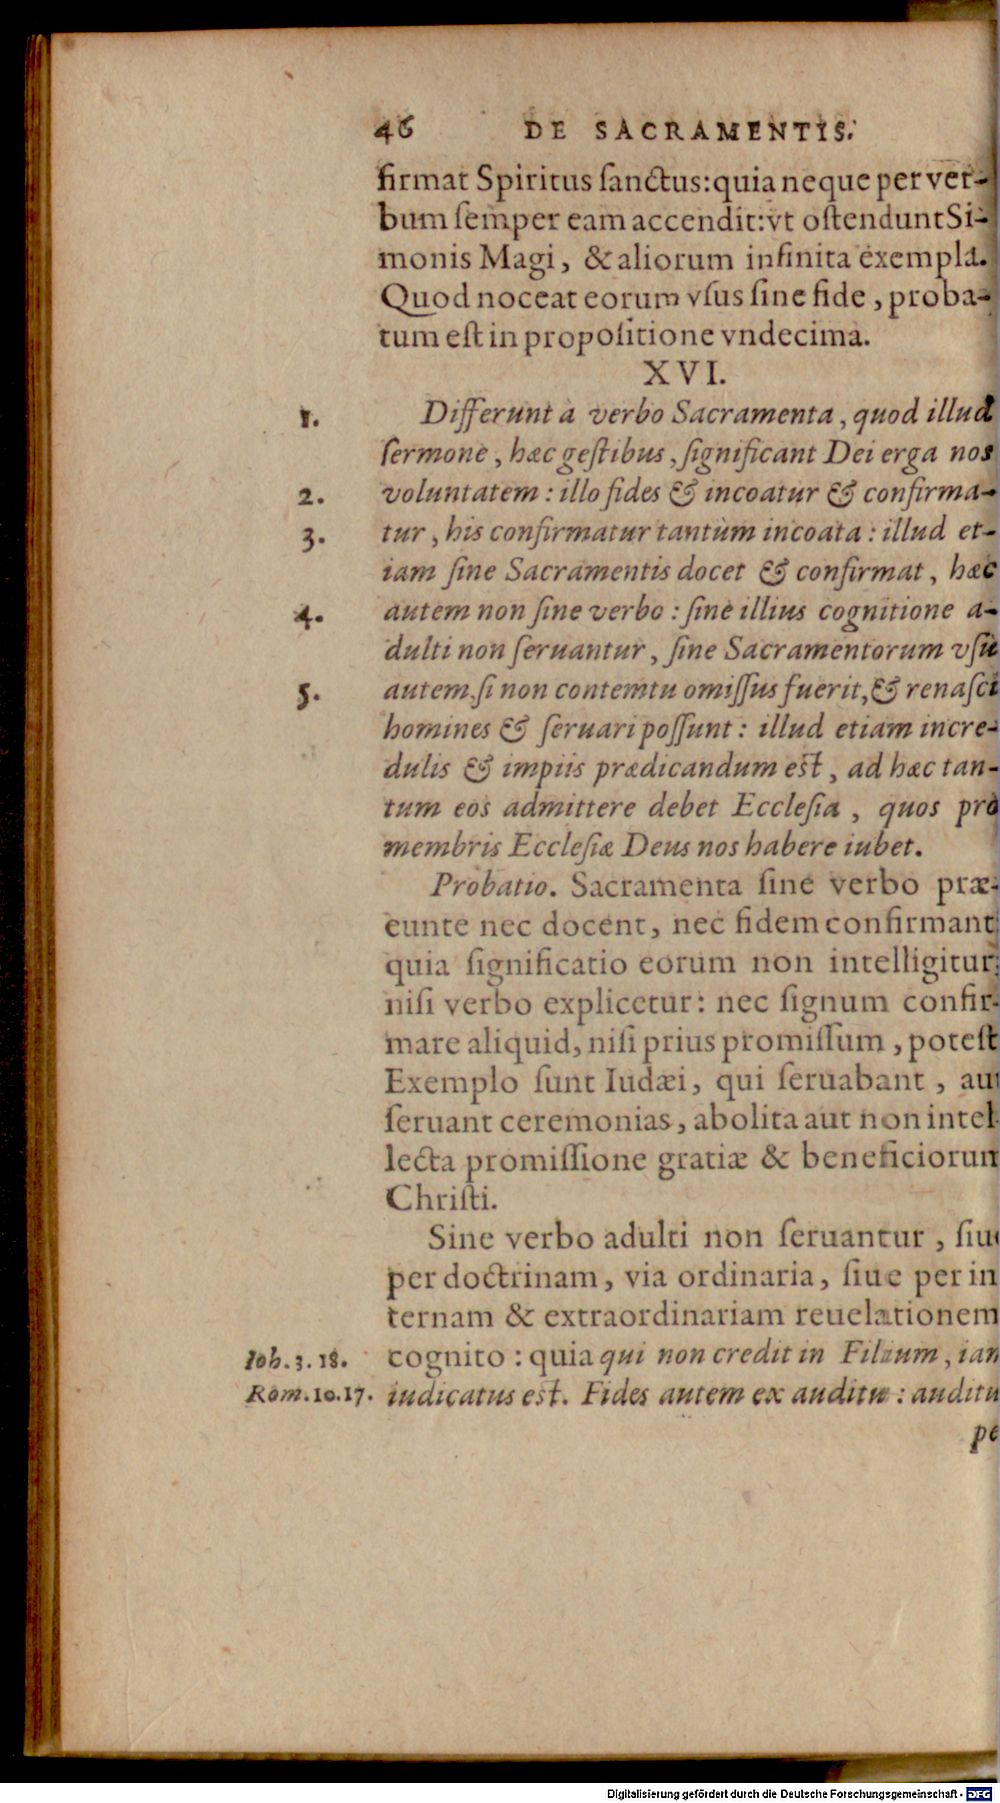 46 DE SACRAMENTIS.
firmat Spiritus ſanctus: quia neque per ver-
bum ſemper eam accendit: vt oſtendunt Si-
monis Magi, & aliorum infinita exempla.
Quod noceat eorum vſus ſine fide, proba-
tum eſt in propoſitione vndecima.
XVI.
1. Differunt à verbo Sacramenta, quod illud
ſermone, hæc geſtibus, ſignificant Dei erga nos
2. voluntatem: illo fides & incoatur & confirma-
3. tur, his confirmatur tantùm incoata: illud et-
iam ſine Sacramentis docet & confirmat, hæc
4. autem non ſine verbo: ſine illius cognitione a-
dulti non ſeruantur, ſine Sacramentorum vſu
5. autem, ſi non contemtu omiſſus fuerit, & renaſci
homines & ſeruari poſſunt: illud etiam incre-
dulis & impiis prædicandum eſt, ad hæc tan-
tum eos admittere debet Eccleſia, quos pro
membris Eccleſiæ Deus nos habere iubet.
Probatio. Sacramenta ſine verbo præ-
eunte nec docent, nec fidem confirmant:
quia ſignificatio eorum non intelligitur,
niſi verbo explicetur: nec ſignum confir-
mare aliquid, niſi prius promiſſum, poteſt
Exemplo ſunt Iudæi, qui ſeruabant, aut
ſeruant ceremonias, abolita aut non intel-
lecta promiſſione gratiæ & beneficiorum
Chriſti.
Sine verbo adulti non ſeruantur, ſiue
per doctrinam, via ordinaria, ſiue per in
ternam & extraordinariam reuelationem
Ioh. 3. 18. cognito: quia qui non credit in Filium, iam
Rom. 10. 17. iudicatus eſt. Fides autem ex auditu: auditu
pe
Digitalisierung gefördert durch die Deutsche Forschungsgemeinschaft - DFG